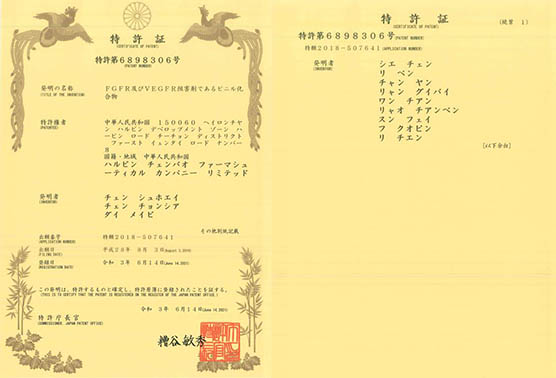 特許証
(CERTIFICATE OF PATENT)
特許第6898306号
(PATENT NUMBER)
発明の名称
(TITLE OF THE INVENTION)
FGFR及びVEGFR阻害剤であるビニル化
合物
特許権者
(PATENTEE)
中華人民共和国 150060 ヘイロンチヤ
ン ハルビン デベロップメント ゾーン ハ
ービン ロード チーチョン ディストリクト
ファースト イェンダイ ロード ナンバー
8
国籍・地域 中華人民共和国
ハルビン チェンバオ ファーマシュ
ーティカル カンパニー リミテッド
発明者
(INVENTOR)
チェン シュホエイ
チェン チョンシア
ダイ メイビ
その他別紙記載
出願番号
(APPLICATION NUMBER)
特願2018-507641
出願日
(FILING DATE)
平成28年 8月 3日(August 3,2016)
登録日
(REGISTRATION DATE)
令和 3年 6月14日(June 14,2021)
この発明は、特許するものと確定し、特許原簿に登録されたことを証する。
(THIS IS TO CERTIFY THAT THE PATENT IS REGISTERED ON THE REGISTER OF THE JAPAN PATENT OFFICE.)
令和 3年 6月14日(June 14,2021)
特許庁長官
(COMMISSIONER, JAPAN PATENT OFFICE)
糟谷敏秀
特許証
(CERTIFICATE OF PATENT)
(続葉 1)
特許第6898306号(PATENT NUMBER)
特願2018-507641(APPLICATION NUMBER)
発明者
(INVENTOR)
シエ チェン
リ ペン
チャン ヤン
リャン グイバイ
ワン チアン
リャオ チアンペン
スン フェイ
フ クオピン
リ チエン
[以下余白]